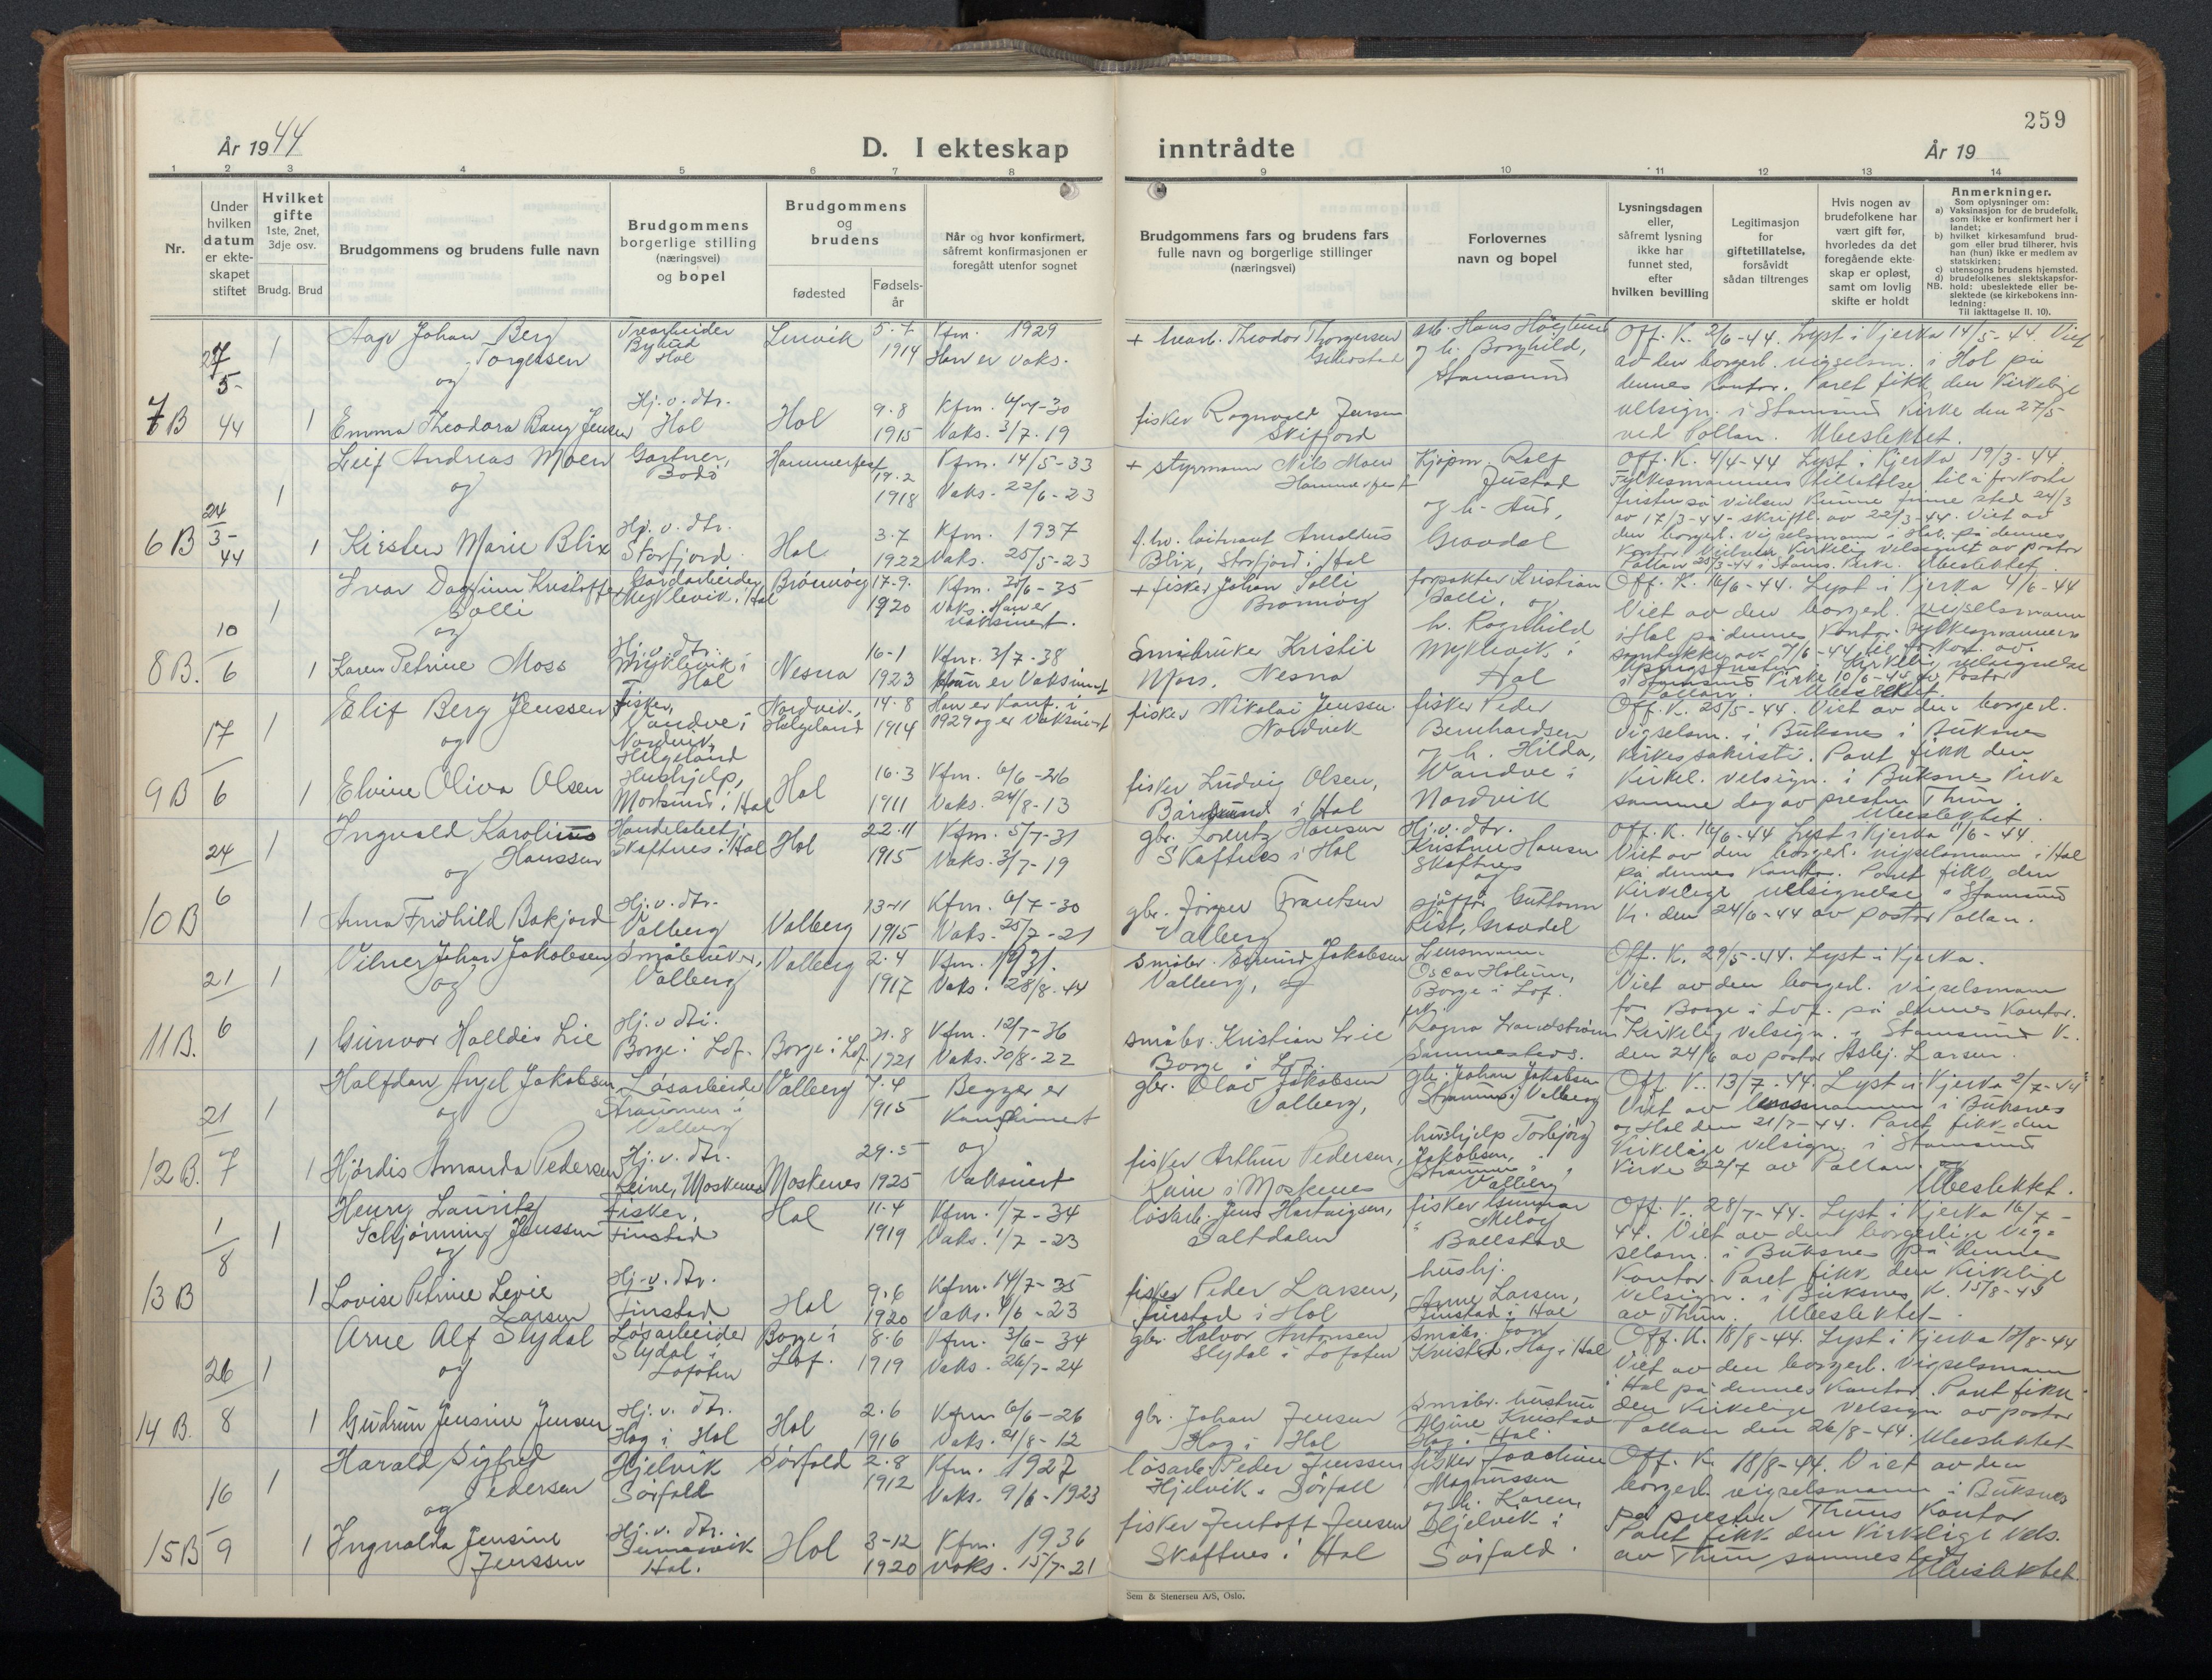 259
År 1944
D. I ekteskap inntrådte
År 19
1 2 3 4 5 6 7 8 9 10 11 12 13 14
Nr.
Under hvilken datum er ekteskapet stiftet
Hvilket gifte 1ste, 2net, 3dje osv.
Brudg. Brud
Brudgommens og brudens fulle navn
Brudgommens borgerlige stilling (næringsvei) og bopel
Brudgommens og brudens
fødested
Fødselsår
Når og hvor konfirmert, såfremt konfirmasjonen er foregått utenfor sognet
Brudgommens fars og brudens fars fulle navn og borgerlige stillinger (næringsvei)
Forlovernes navn og bopel
Lysningsdagen eller, såfremt lysning ikke har funnet sted, efter hvilken bevilling
Legitimasjon for giftetillatelse, forsåvidt sådan tiltrenges
Hvis nogen av brudefolkene har vært gift før, hvorledes da det foregående ekteskap er opløst, samt om lovlig skifte er holdt
Anmerkninger.
Som oplysninger om:
a) Vaksinasjon for de brudefolk, som ikke er konfirmert her i landet;
b) hvilket kirkesamfund brudgom eller brud tilhører, hvis han (hun) ikke er medlem av statskirken;
c) utensogns brudens hjemsted.
d) brudefolkenes slektskapsforhold: ubeslektede eller beslektede (se kirkebokens innledning:
NB. Til iakttagelse II. 10).
7B 27/5-44 1 Aage Johan Berg Torgersen Trearbeider Hol Lenvik 1914 Kfm. 1929 Han er vaks.
og
1 Emma Theodora Bang Jensen Hj.v. dtr. Hol Hol 9.8 1915 Vaks. 3/7-19
fisker Ragnvald Jensen Skifjord
og h. Borghild, Stamsund
Off. K. 2/6-44. Lyst i Kjerka 14/5-44. Viet
av den borgerl. vigselsm. i Hol på
dennes Kontor. Paret fikk den Kirkelige
velsign. i Stamsund Kirke den 27/5
ved Pollan. Ubeslektet.
6B 24/3-44 1 Leif Andreas Moen Gartner, Bodö Hammerfest 19.2 1918 Kfm. 14/5-33 Vaks. 22/6-23
og
1 Kirsten Marie Blix Hj. v. dtr. Storfjord Hol 3.7 1922 Kfm. 1937 Vaks. 25/5-23
+ styrmann Nils Moen Hammerfest
Blix, Storfjord i Hol
Kjøpm. Rolf Justad
og h. Aud, Gravdal
Off. K. 4/4-44 Lyst i Kjerka 19/3-44
8B. 10/6 1 Ivar Dagfinn Kristoffer Solli Gårdarbeider Myklevik i Hol Brönnöy 17-9. 1920 Vaks. Han er vaksinert.
og
1 Karen Petrine Moss Hj. v. dtr. Myklevik i Hol Nesna 16-1 1923 Kfm. 3/7-38 er Vaksinert
+ fisker Johan Solli Brönnöy
forpakter Kristian Solli, og
h. Ragnhild Myklevik i Hol
Off. K. 16/6-44. Lyst i Kjerka 4/6-44
Viet av den borgerl. vigselsmann
i Hol på dennes Kontor.
9B 17/6 1 Elif Berg Jenssen Fisker, Vandve i Nordvik, Helgeland Nordvik, Helgeland 14.8 1914 Han er Konf. i 1929 og er Vaksinert
og
1 Elvine Oliva Olsen Hushjelp, Mortsund i Hol Hol 16.3 1911 Kfm. 6/6-26 Vaks. 24/8-13
fisker Nikolai Jenssen Nordvik
fisker Ludvig Olsen, i Hol
fisker Peder Bernhardsen
og h. Hilda, Wandve i Nordvik
Off. K. 25/5-44. Viet av den borgerl.
vigselsm. i Buksnes i Buksnes
Kirkes sakristi. Paret fikk den
Kirkel. velsign. i Buksnes Kirke
samme dag av presten Thun.
Ubeslektet.
10B 24/6 1 Ingvald Karolius Hanssen Handelsbetj. Skaftnes i Hol Hol 22.11 1915 Kfm. 5/7-31 Vaks. 3/7-19
og
1 Anna Fridhild Bakjord Hj. v. dtr. Valberg Valberg 13-11 1915 Kfm. 6/7-30 Vaks. 25/7-21
gbr. Lorentz Hansen Skaftnes i Hol
gbr. Jörgen Frantsen Valberg
Hj. v. dtr. Kristine Hansen Skaftnes
og
sjåfför Guttorm List, Gravdal
Off. K. 16/6-44 Lyst i Kjerka 11/6-44
Viet av den borgerl. vigselsmann i Hol
på dennes Kontor. Paret fikk den
Kirkelige velsignelse i Stamsund
K. den 24/6-44 av pastor Pollan.
11B. 21/6 1 Vilner Johan Jakobsen Småbruker, Valberg Valberg 2.4 1917 Kfm. 1931. Vaks. 28/8-44
og
1 Gunvor Halldis Lie Hj. v dtr. Borge i Lof. Borge i Lof. 21.8 1921 Kfm. 12/7-36 Vaks. 30/8-22
Småbr. Jakobsen Valberg, og
småbr. Kristian Lie Borge i Lof.
Lensmann Oscar Holum, Borge i Lof.
frk. Ragna Strandström Sammesteds.
Off. K. 29/5-44. Lyst i Kjerka.
Viet av den borgerl. vigselsmann
for Borge i Lof. på dennes Kontor.
Kirkelig velsign. i Stamsund K.
den 24/6 av pastor Asbj. Larsen.
12B. 21/7 1 Halfdan Angel Jakobsen Løsarbeider Straumen i Valberg Valberg 7.4 1915 Begge er
og Konfirmert
1 Hjördis Amanda Pedersen Hj. v. dtr. Reine, Moskenes Moskenes 29.5 1925 og Vaksinert
gbr. Olav Jakobsen Valberg,
fisker Arthur Pedersen, Reine i Moskenes
gbr. Johan Jakobsen Straumen i Valberg
hushjelp Torbjörg Jakobsen, Straumen i Valberg
Off. K. 13/7-44. Lyst i Kjerka 2/7-44
Viet av lensmannen i Buksnes
og Hol den 21/7-44. Paret fikk den
Kirkelige velsign. i Stamsund
Kirke 22/7 av Pollan.
Ubeslektet.
13B 1/8 1 Henry Lauritz Schjönning Jenssen Fisker, Finstad Hol 11.4 1919 Kfm. 1/7-34 Vaks. 1/7-23
og
1 Lovise Petrine Levie Larsen Hj. v. dtr. Finstad Hol 9.6 1920 Kfm. 14/7-35 Vaks. 4/6-23
løsarb. Jens Hartvigsen, Saltdalen
fisker Peder Larsen, Finstad i Hol
fisker Gunnar Meløy Ballstad
hushj. Anne Larsen, Finstad i Hol
Off. K. 28/7-44. Lyst i Kjerka 16/7-
44. Viet av den borgerlige vig=
selsm. i Buksnes på dennes
Kontor. Paret fikk den Kirkelige
velsign. i Buksnes K. 15/8-44
av Thun. Ubeslektet-
14B. 26/8 1 Arne Alf Slydal Løsarbeider Slydal i Lofoten Borge i Lof. 8.6 1919 Kfm. 3/6-34 Vaks. 26/7-24
og
1 Gudrun Jensine Jensen Hj. v. dtr. Hag i Hol Hol 2.6 1916 Kfm 6/6-26 Vaks. 21/8-12
gbr. Halvor Antonsen Slydal i Lofoten
gbr. Johan Jensen Hag i Hol
Småbr. Kristad, Hag i Hol
Småbr. hustru Aline Kristad Hag i Hol.
Off. K. 18/8-44. Lyst i Kjerka 13/8-44
Viet av den borgerl. vigselsmann
i Hol på dennes Kontor. Paret fikk
den Kirkelige velsign av pastor
Pollan den 26/8-44. Ubeslektet-
15B 16/9 1 Harald Sigfred Pedersen Hjelvik Sörfold Sörfold 2.8 1912 Kfm. 1927 Vaks. 9/6-1923
og
1 Ingvalda Jensine Jenssen Hj. v. dtr. Hol. Hol 3-12 1920 Kfm. 1936 Vaks. 15/7-21
løsarb. Peder Jenssen Hjelvik. Sörfoll
fisker Jentoft Jensen Skaftnes i Hol
fisker Joachim Magnussen
og h. Karen, Hjelvik i Sörfold.
Off. K. 18/8-44. Viet av den
borgerl. vigselsmann i Buksnes
på presten Thuns Kontor
Paret fikk den Kirkelige Vels.
av Thun sammesteds
Ubeslektet.
Sem & Stenersen A/S, Oslo.